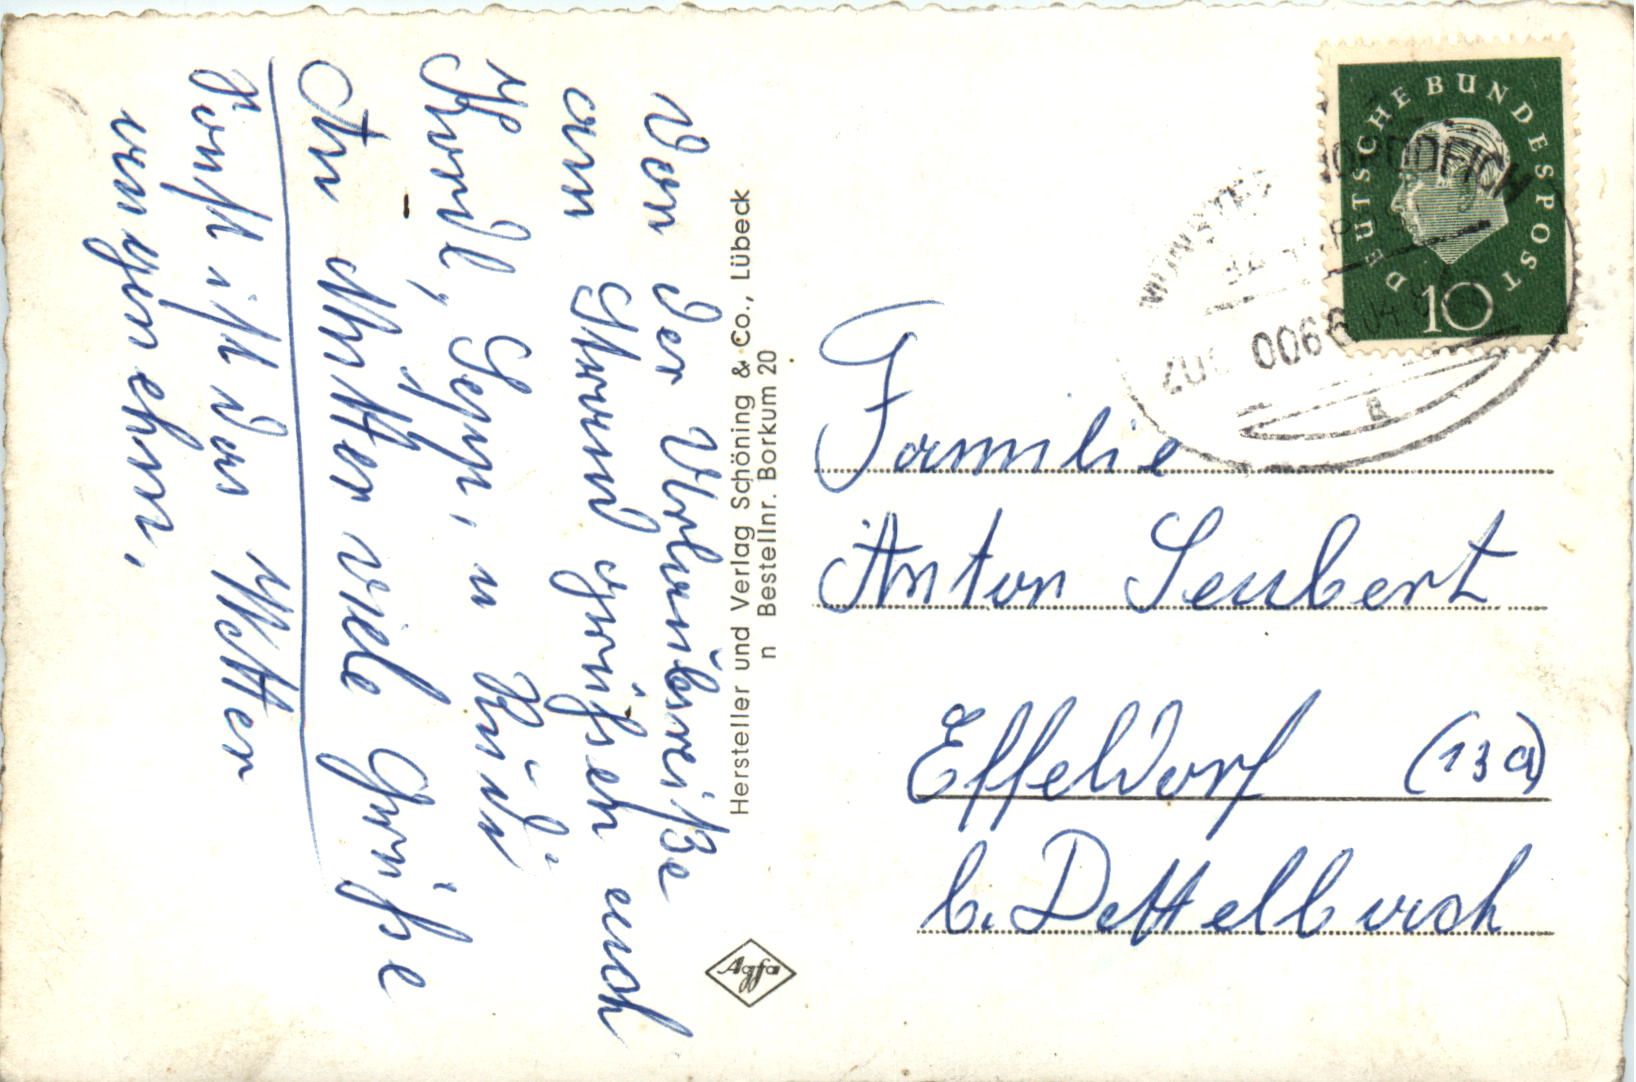 Von der Urlaubsreise
am Strand grüßen euch
Karl, Sepp, u Rudi
An Mutter viele Grüße
Sonst ist das Wetter
angenehm.
Hersteller und Verlag Schöning & Co., Lübeck
n Bestellnr. Borkum 20
n
Agfa
DEUTSCHE BUNDESPOST
10
ZUG 0066
a
Familie
Anton Seubert
Effeldorf (13a)
b. Dettelbach